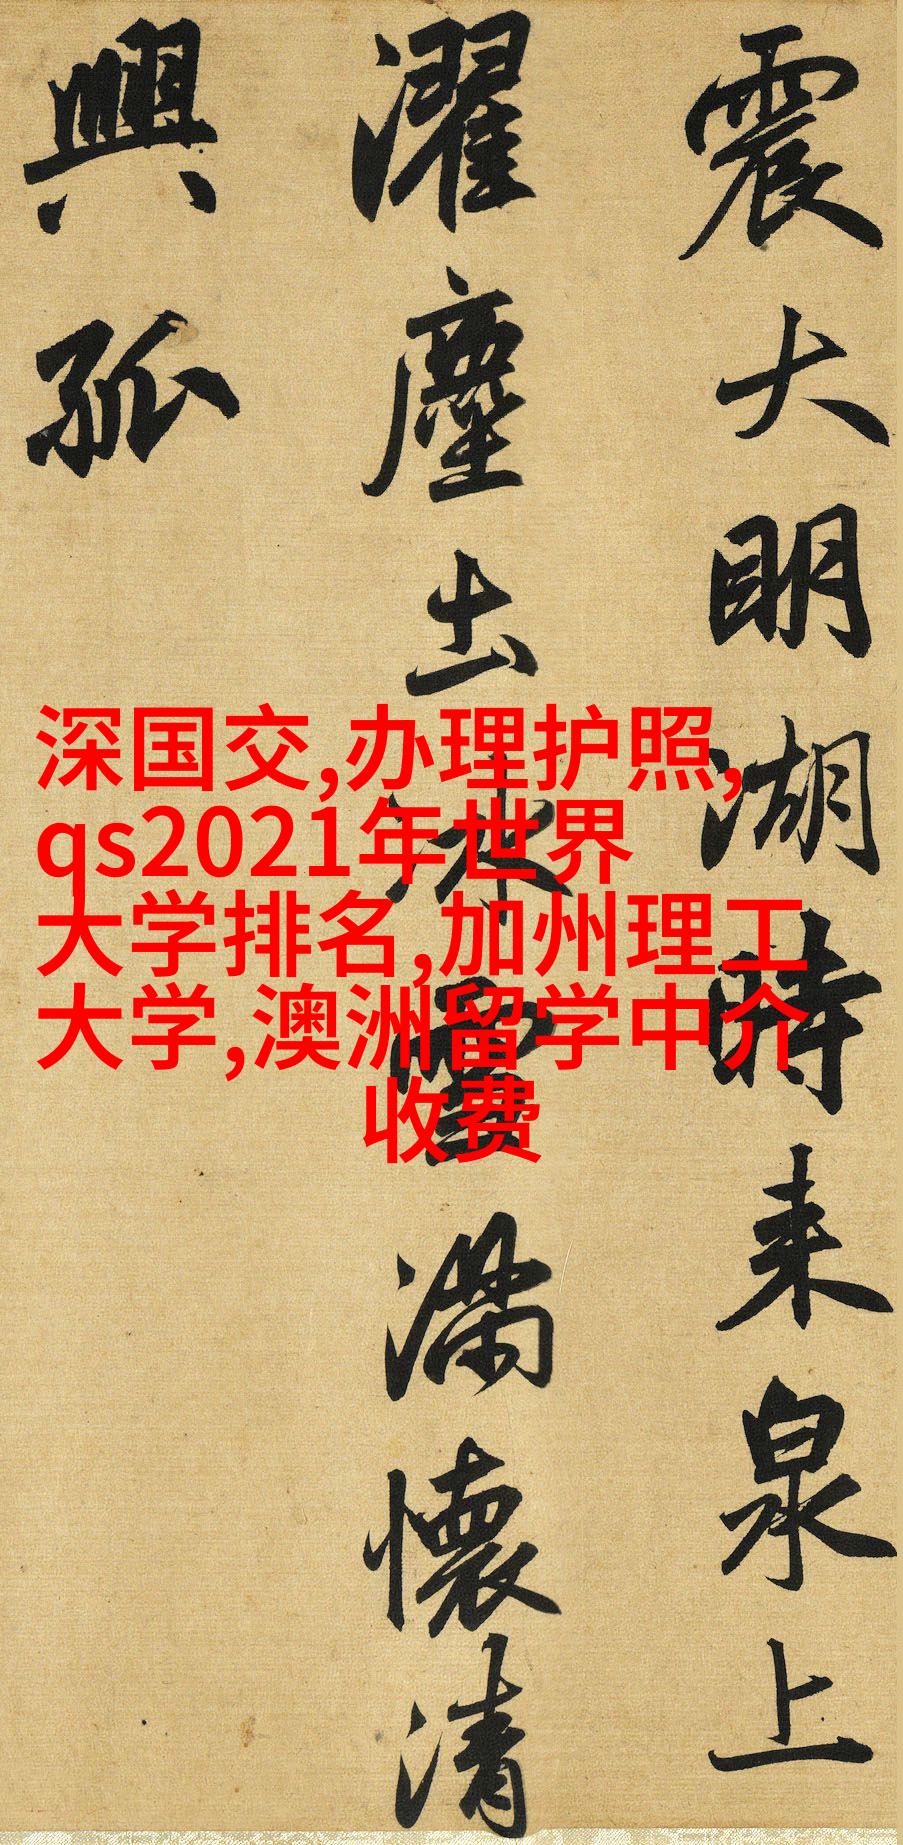 震大明湖時来泉上
濯塵出冰雪滿懷清
興孤
深国交,办理护照,
qs2021年世界
大学排名,加州理工
大学,澳洲留学中介
收费